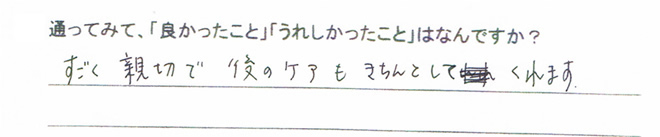 通ってみて、「良かったこと」「うれしかったこと」はなんですか？
すごく 親切で 後の ケア も きちんとして くれます.